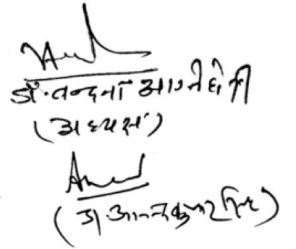 डॉ. वन्दना अग्निहोत्री
(अध्यक्ष)
(डॉ. आनन्द कुमार सिंह)